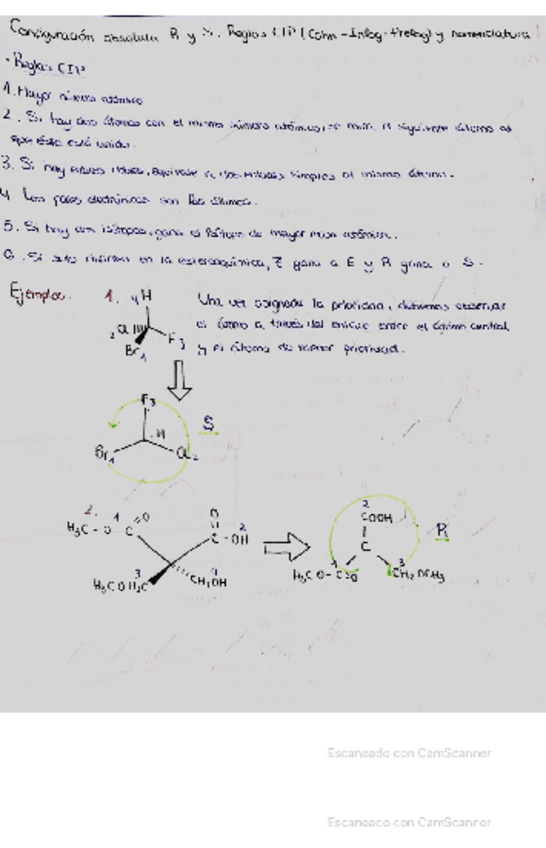 Configuración absoluta R y S. Reglas CIP (Cahn-Infog-Prelog) y nomenclatura
· Reglas CIP
1. Mayor número atómico
2. Si hay dos átomos con el mismo número atómico, se mira el siguiente átomo al
que éste está unido.
3. Si hay enlaces dobles, equivale a dos enlaces simples al mismo átomo.
4. Los pares electrónicos son los últimos.
5. Si hay dos isótopos, gana el isótopo de mayor masa atómica.
6. Si solo difieren en la estereoquímica, Z gana a E y R gana a S.
Ejemplos. 1. 4H
Una vez asignada la prioridad, debemos observar
el átomo a través del enlace entre el átomo central
y el átomo de menor prioridad.
2Cl
Br1
F3
F3
S
H
Br1
Cl2
2.
H3C-O-C
1
O
O
C-OH
2
3
H3COH2C
4
CH2OH
2
COOH
R
C
1
H3CO-C=O
3
CH2OCH3
Escaneado con CamScanner
Escaneado con CamScanner